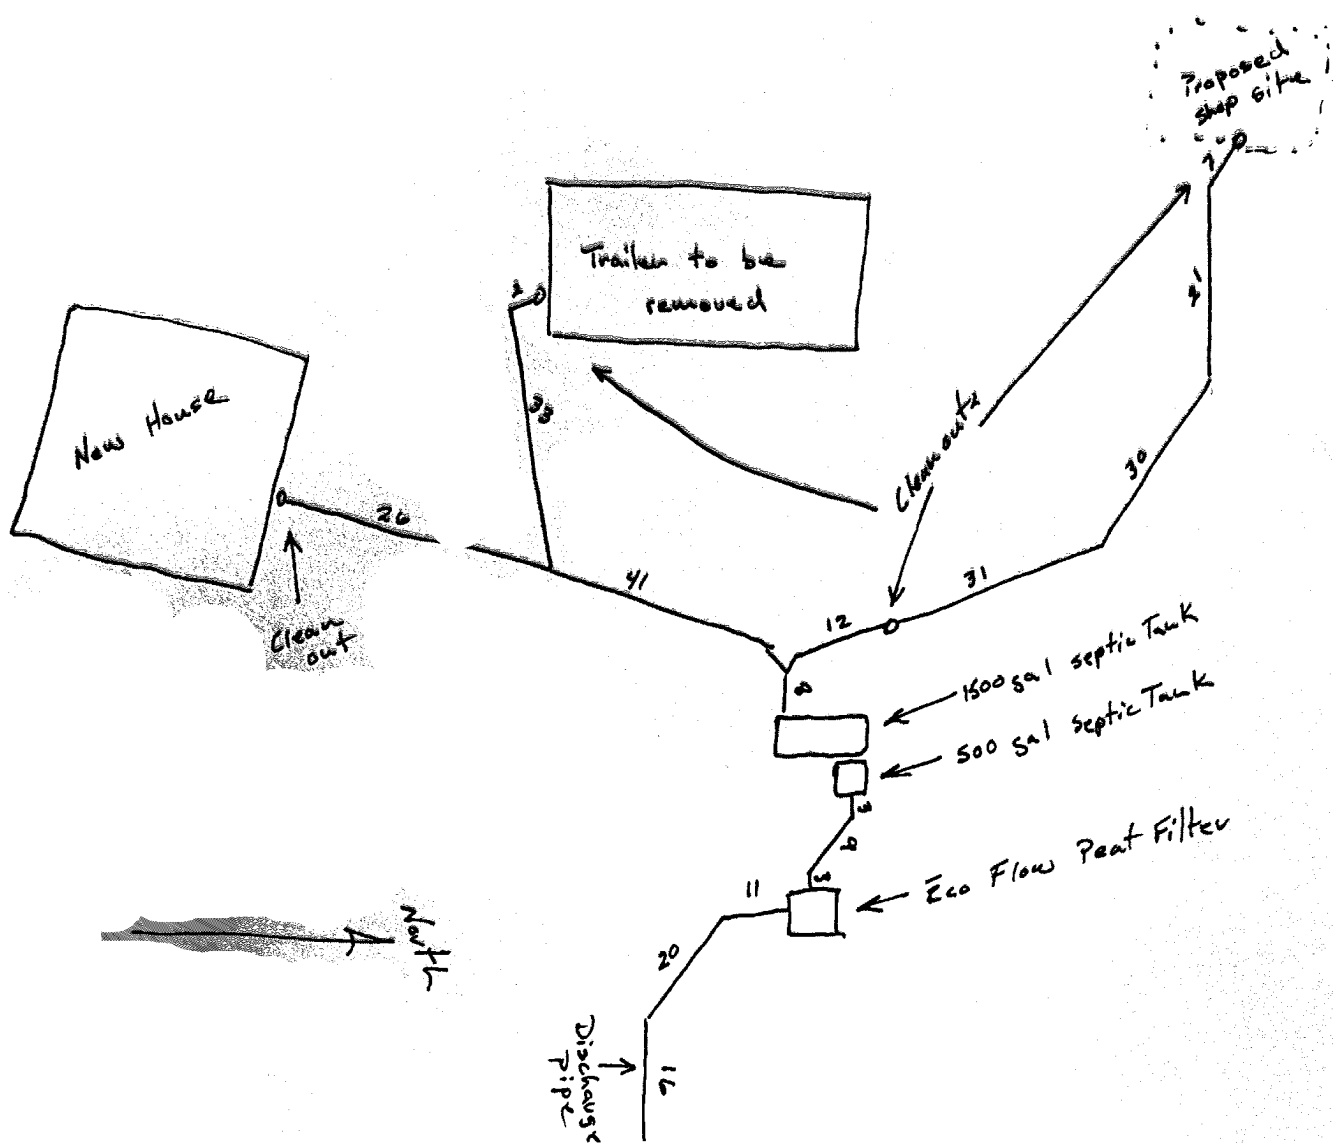 Proposed
shop site
7
Trailer to be
removed
2
41
33
New House
Clean outs
30
26
41
31
12
Clean
out
8
1500 gal septic Tank
500 gal septic Tank
3
9
5
Eco Flow Peat Filter
11
North
20
Discharge
pipe
16